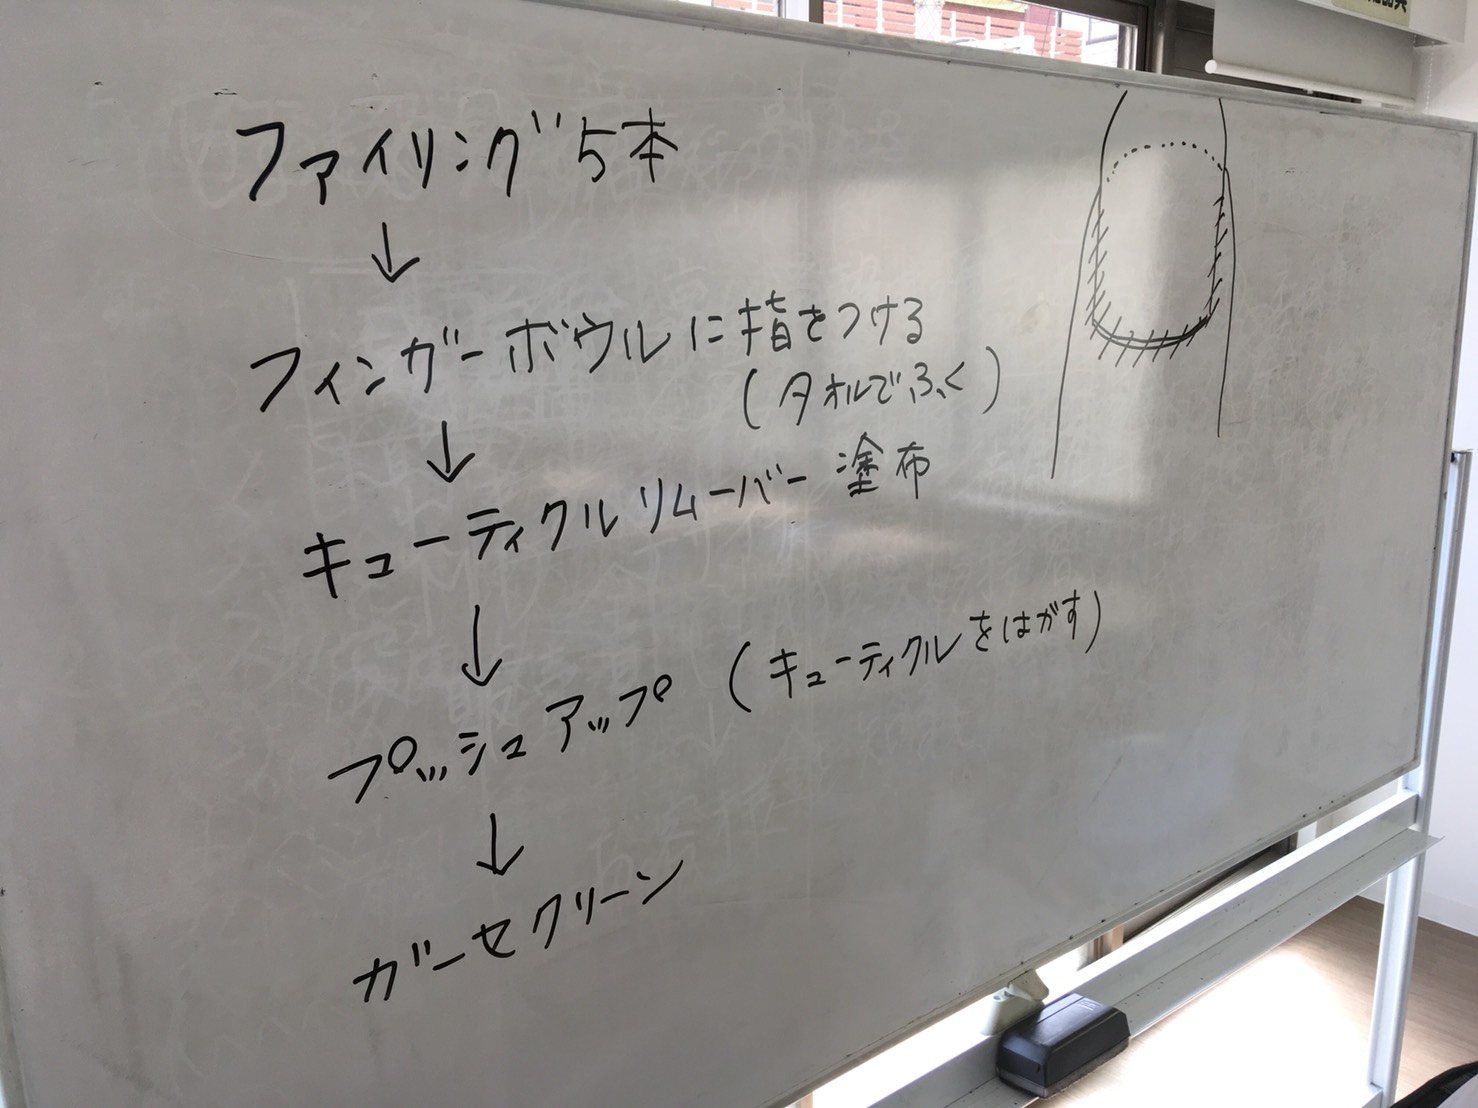 ファイリング 5本
↓
フィンガーボウルに指をつける
(タオルでふく)
↓
キューティクルリムーバー塗布
↓
プッシュアップ (キューティクルをはがす)
↓
ガーゼクリーン